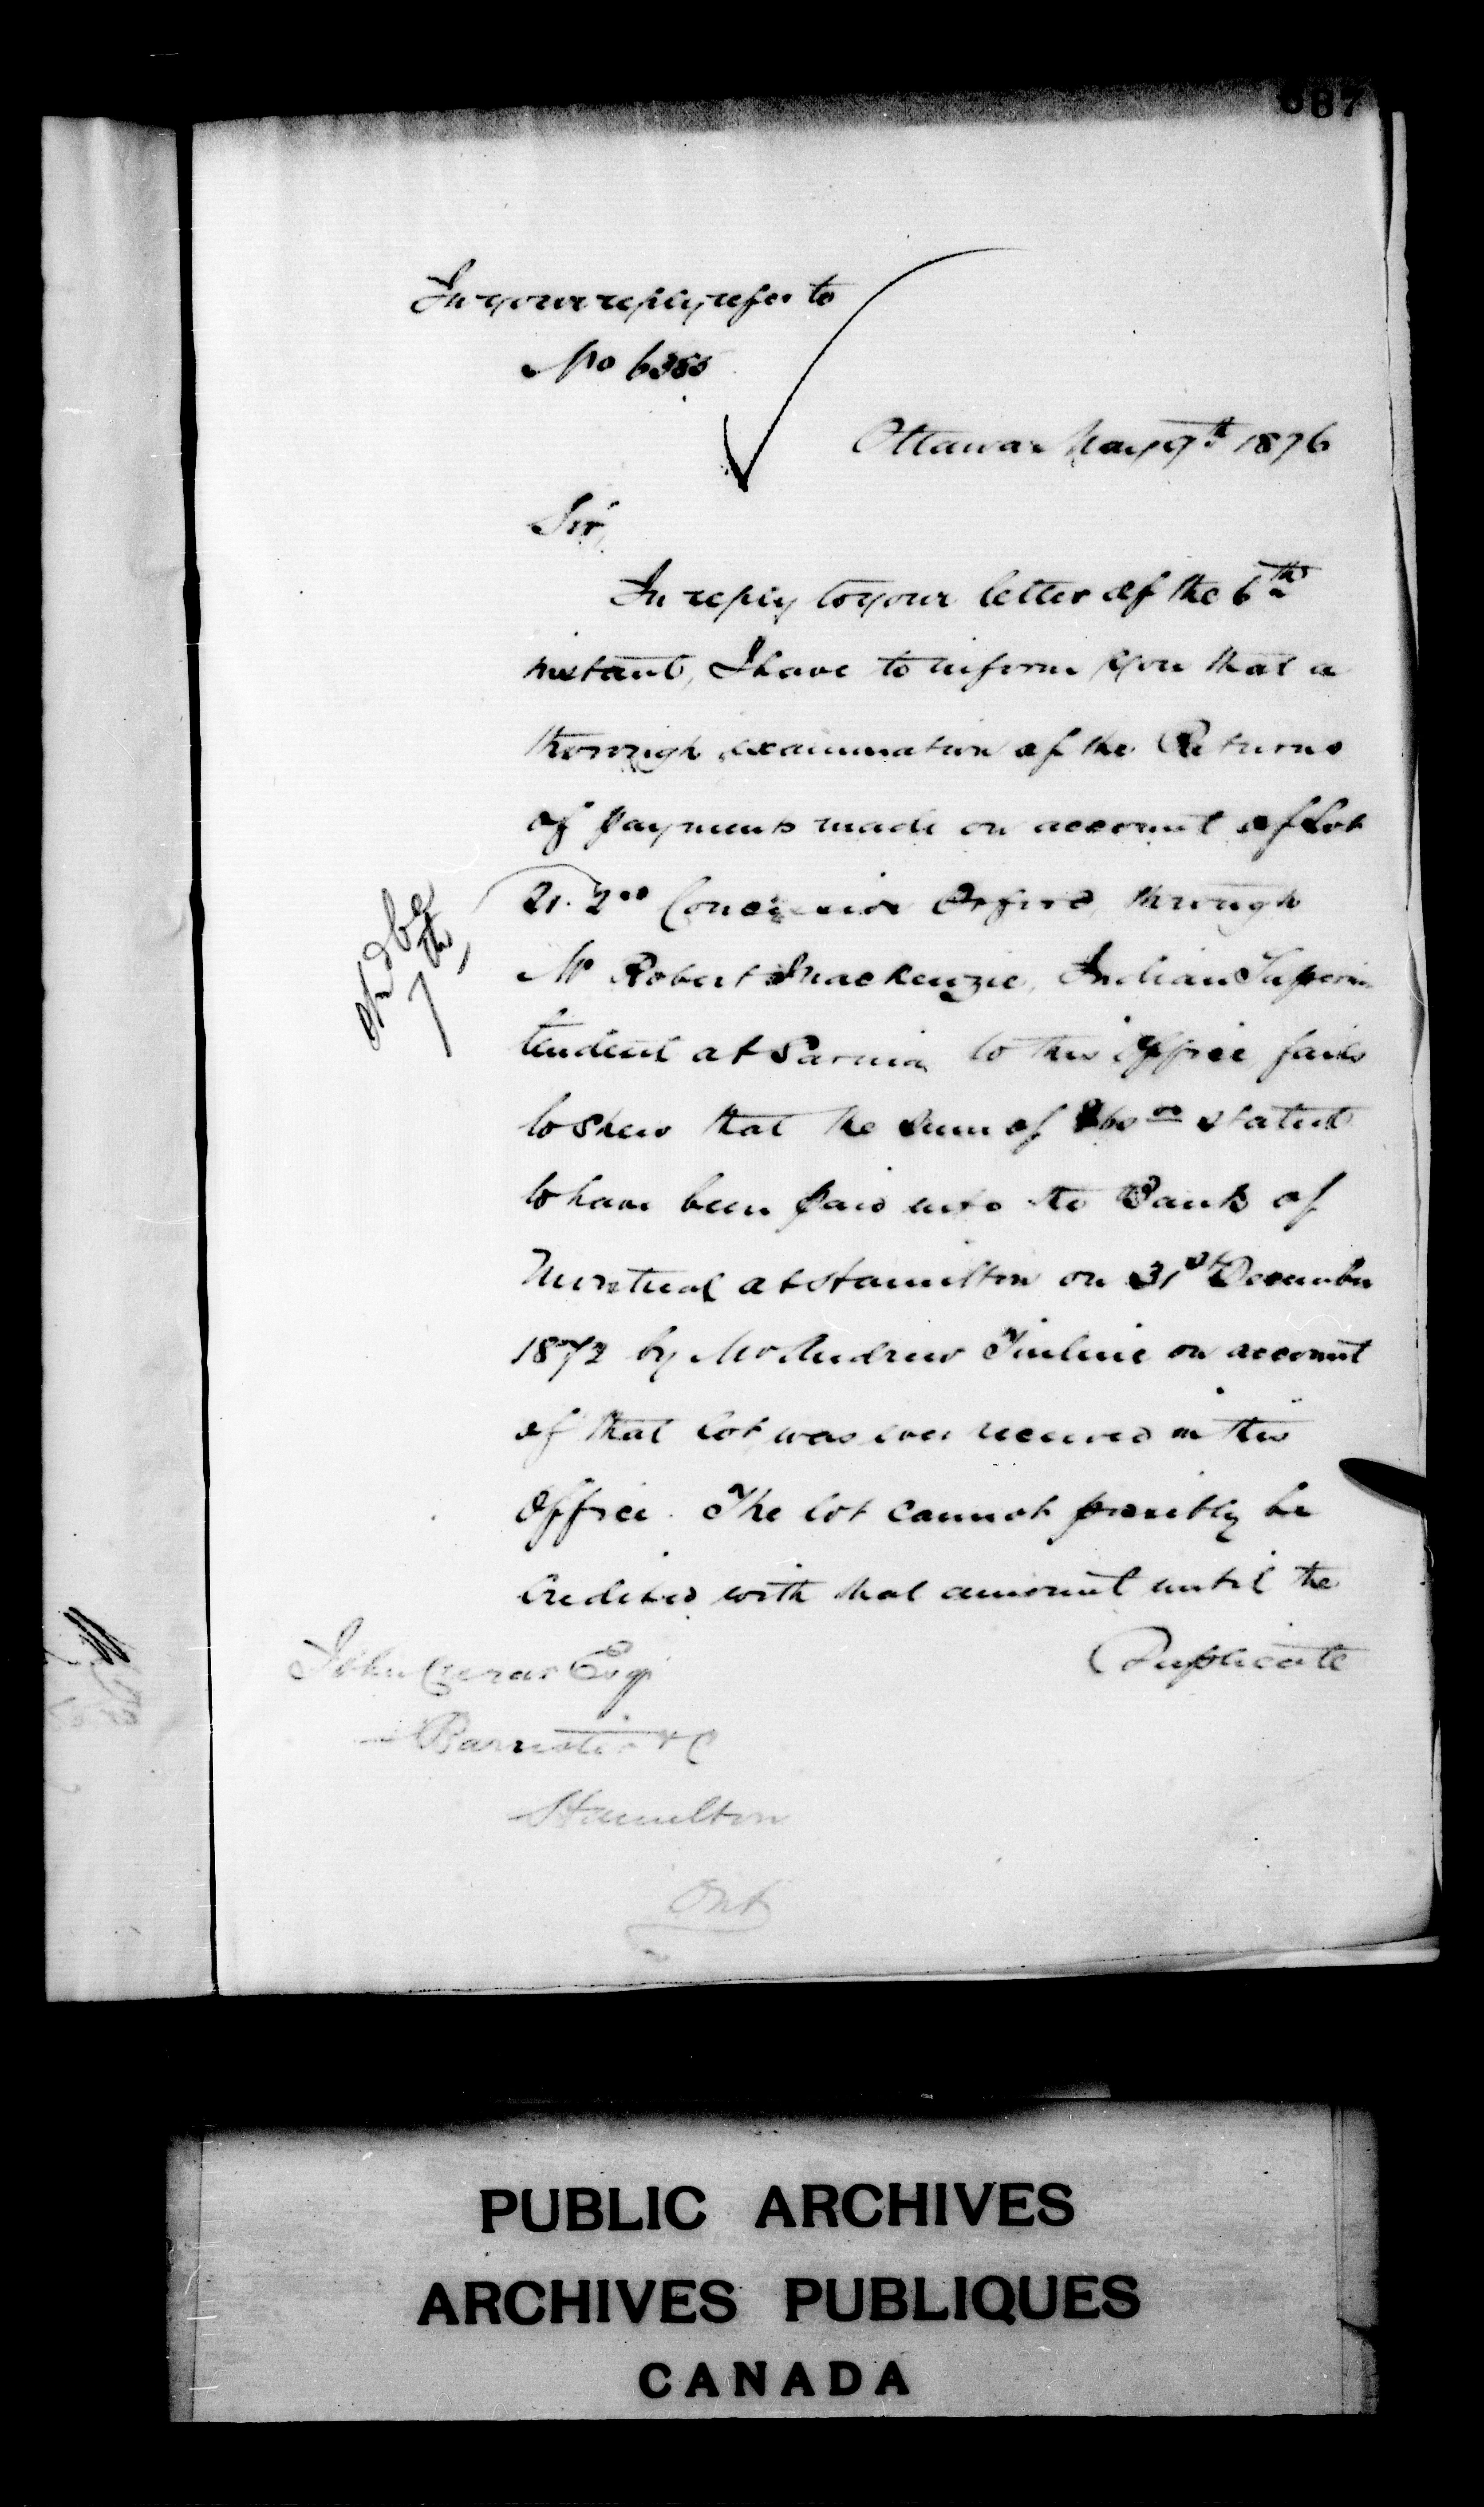 887
In your reply refer to
No 6355
Ottawa May 9th 1876
Sir,
In reply to your letter of the 6th
instant, I have to inform you that a
thorough examination of the Returns
of payments made on account of Lot
21. 2nd Concession Orford, through
Mr Robert Mackenzie, Indian Superin
tendent at Sarnia to this Office fails
to shew that the sum of stated
to have been paid into the Bank of
Montreal at Hamilton on 31st December
1872 by Mr Andrew on account
of that lot was ever received in this
Office. The lot cannot possibly be
Credited with that amount until the
Duplicate
John Crerar Esqr
Barrister &c
Hamilton
Ont
PUBLIC ARCHIVES
ARCHIVES PUBLIQUES
CANADA